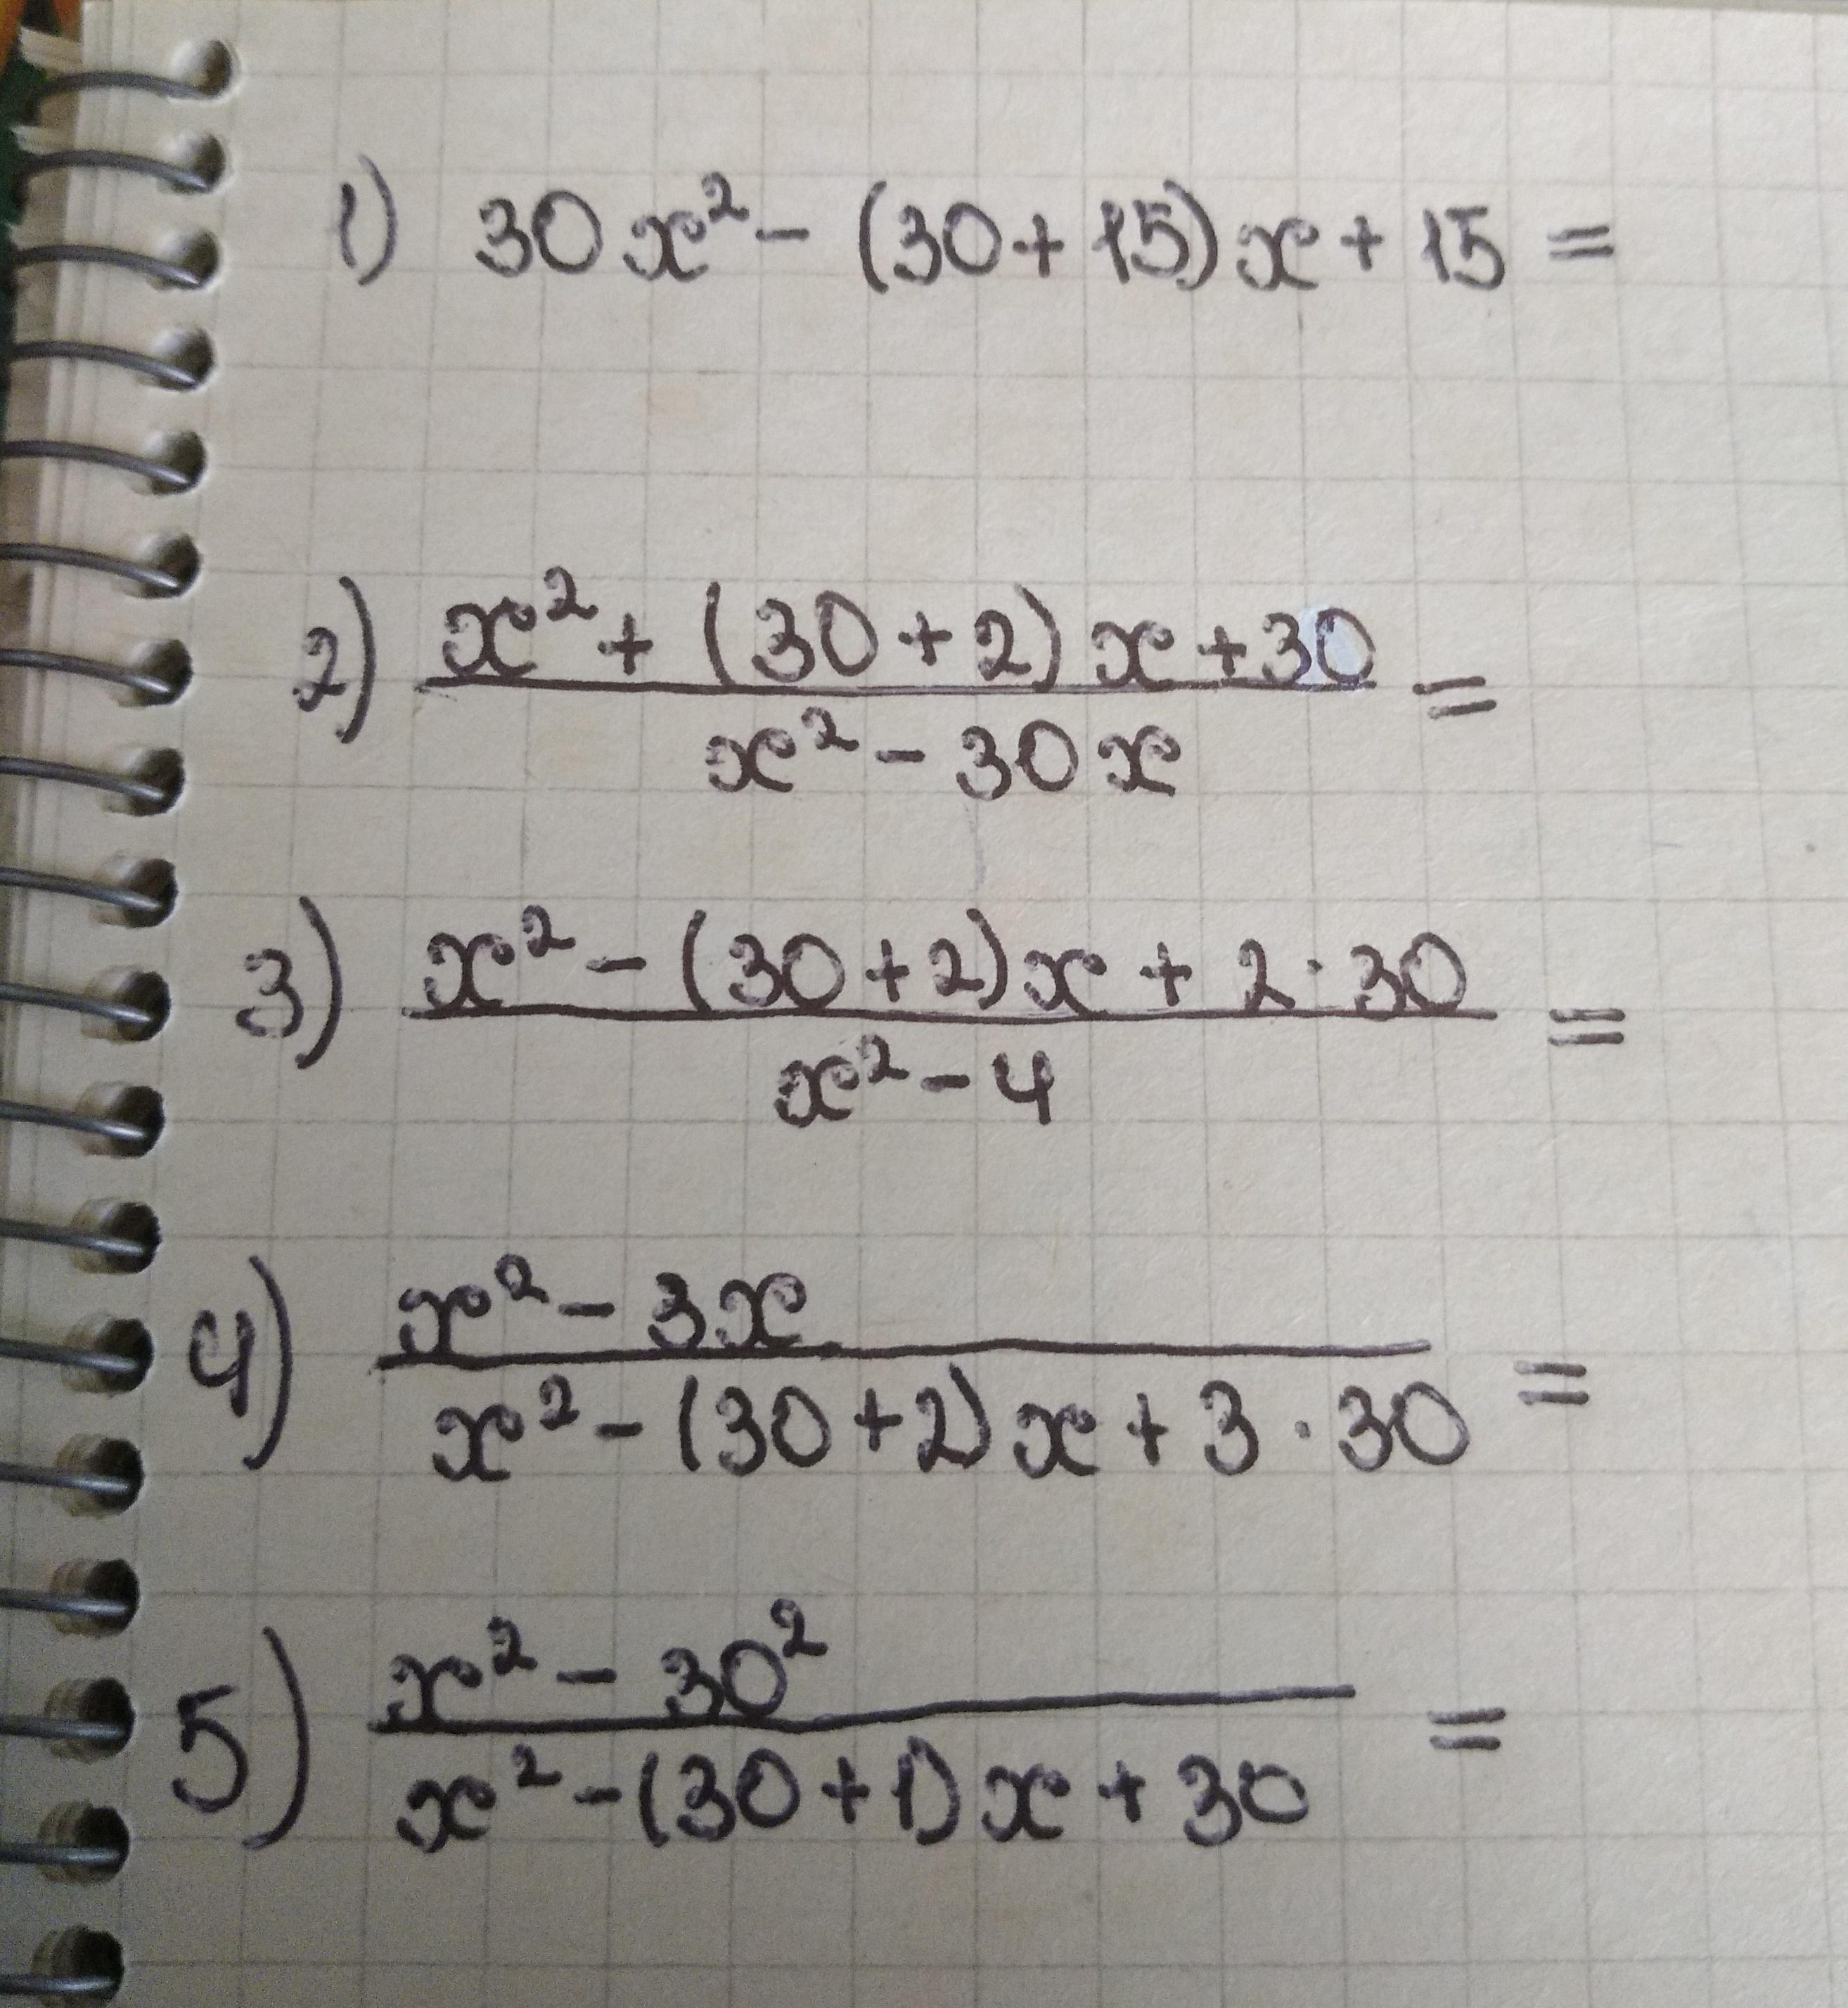 1) 30x² - (30+15)x + 15 =
2) x² + (30+2)x + 30 =
x² - 30x
3) x² - (30+2)x + 2·30 =
x² - 4
4) x² - 3x =
x² - (30+2)x + 3·30
5) x² - 30² =
x² - (30+1)x + 30